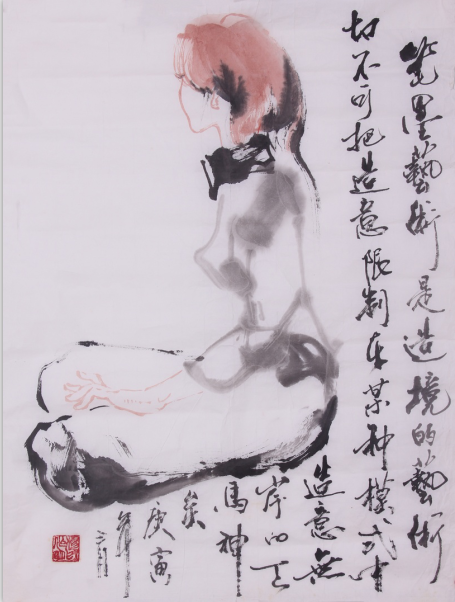 笔墨藝術是造境的藝術
切不可把造意限制在某种模式中
造意無
岸天
馬神
矣
庚寅
年